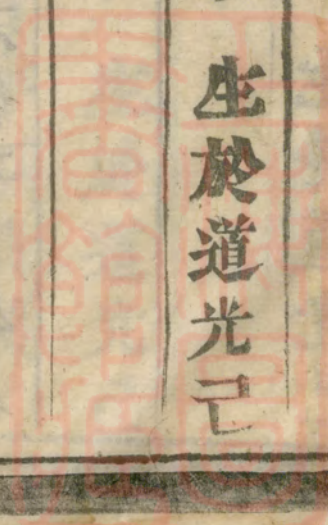 生於道光己